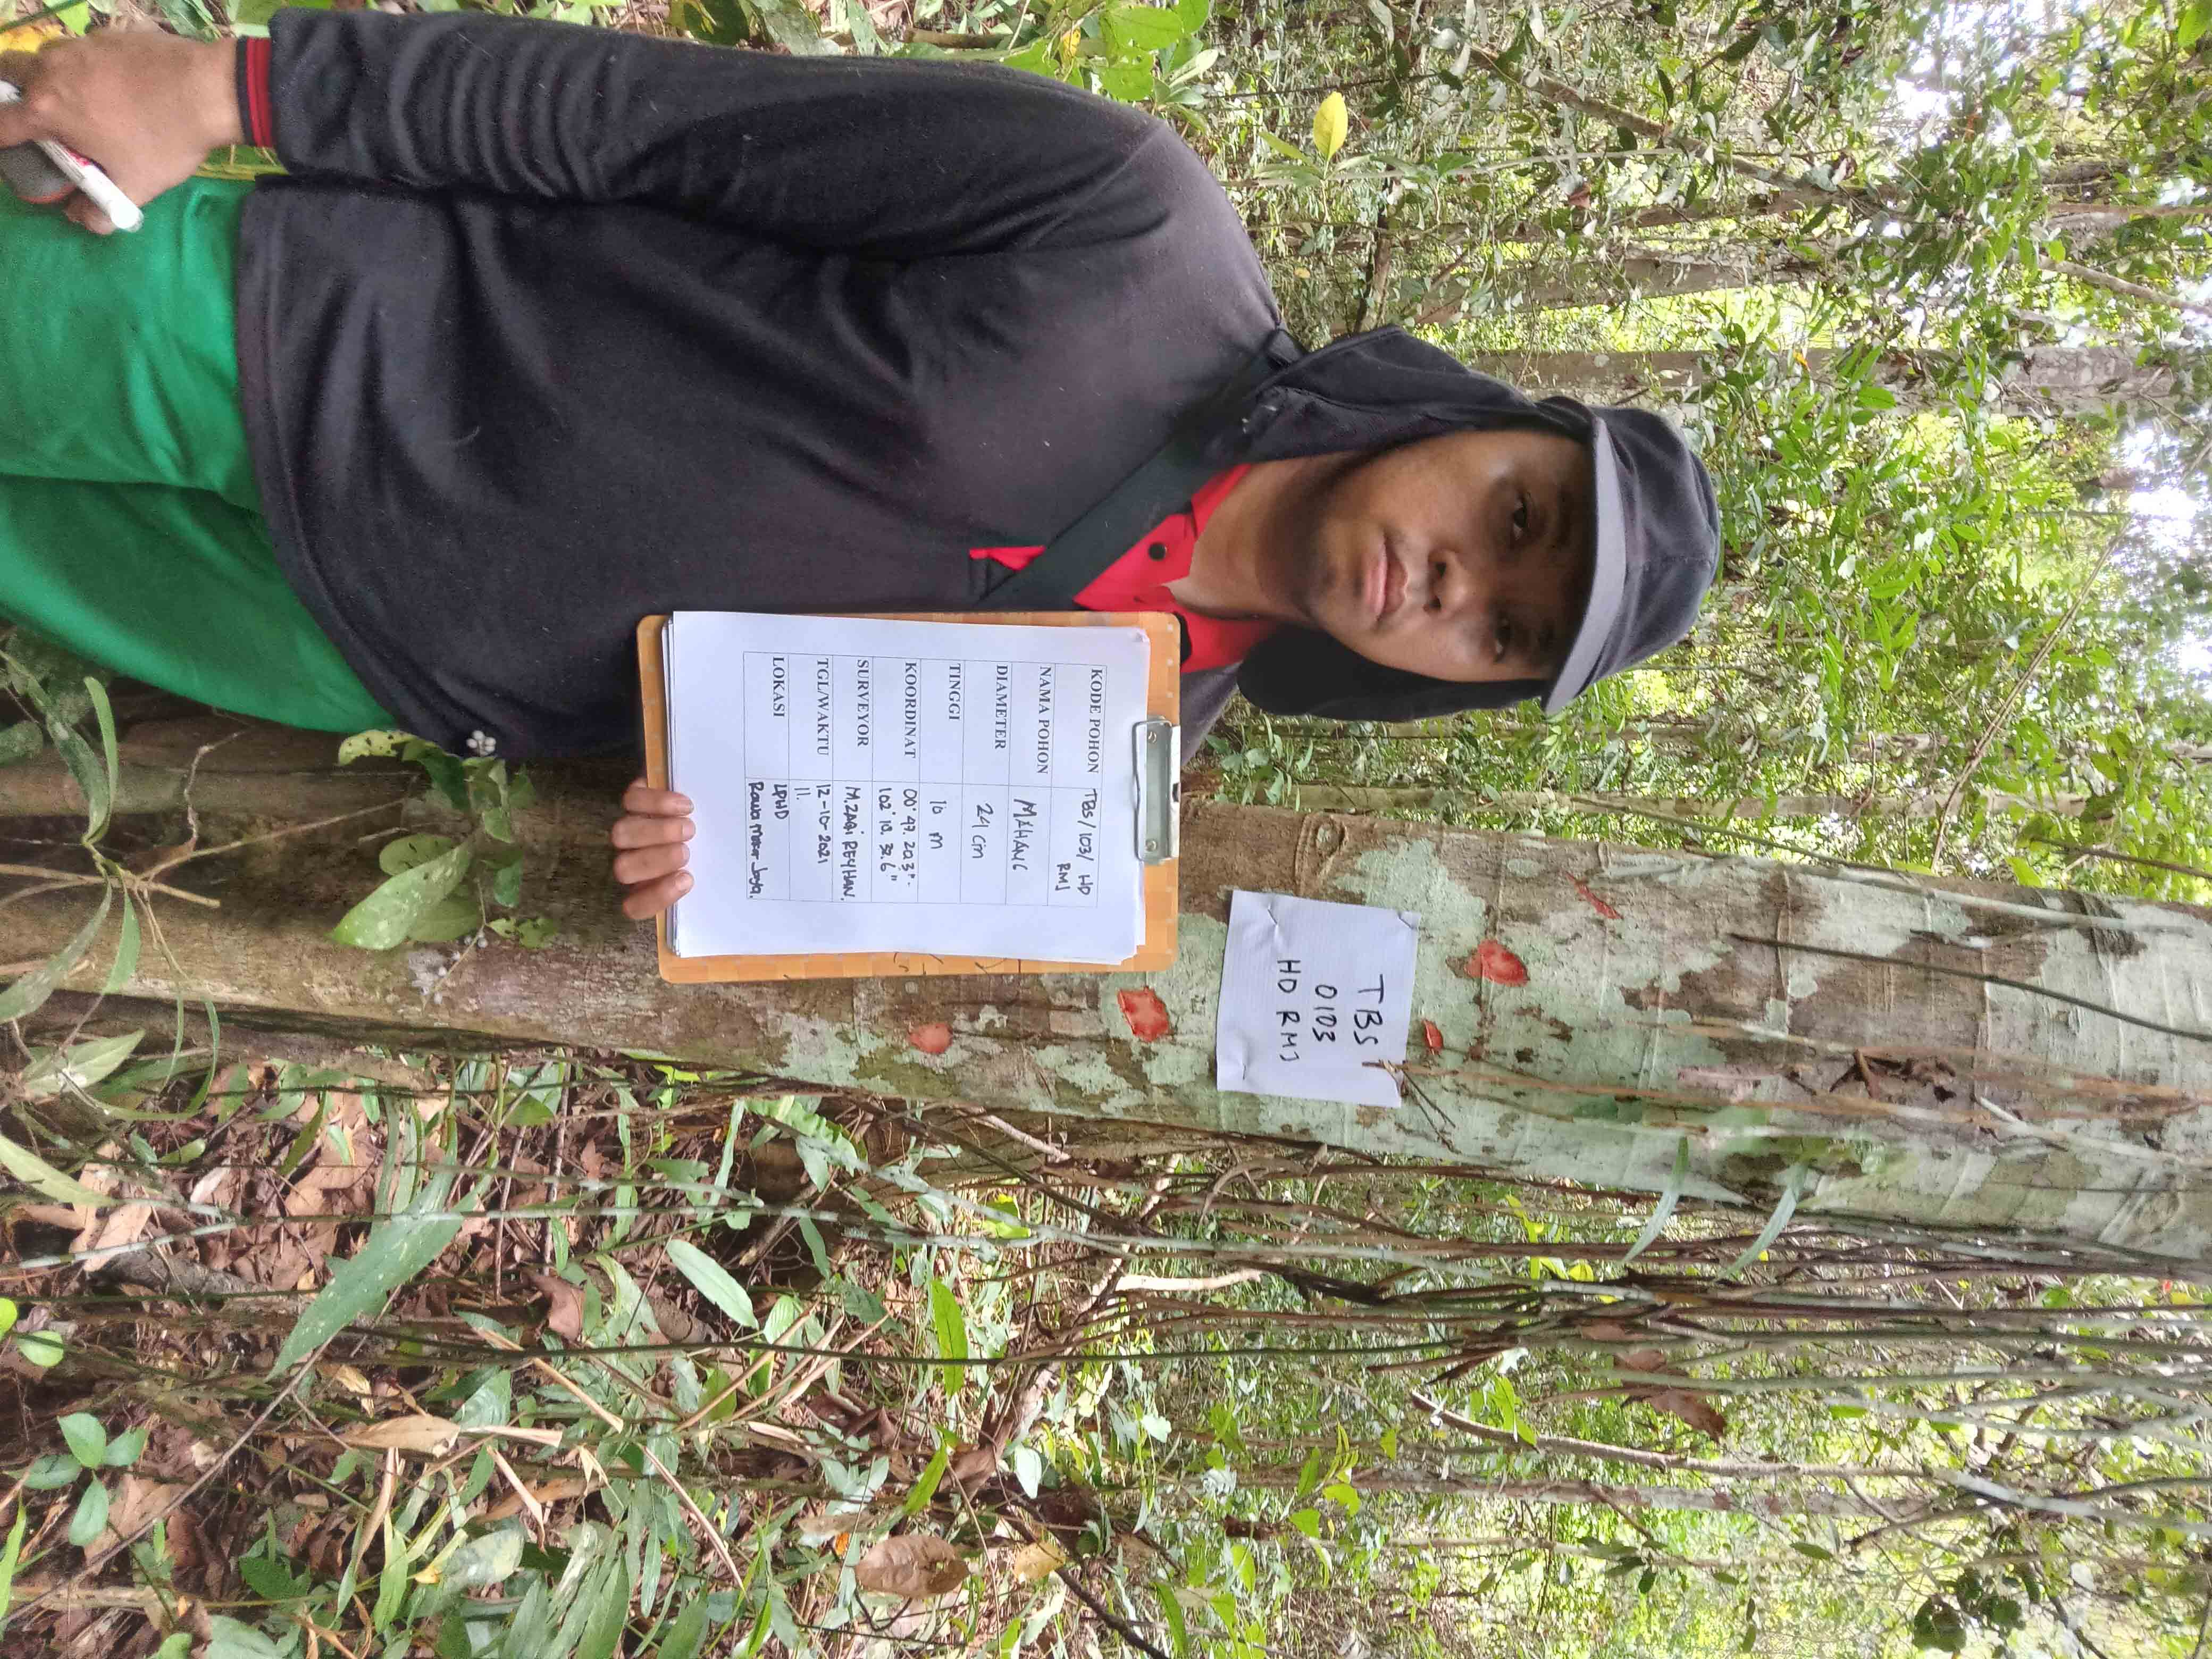 TBS
0103
HD RMJ
KODE POHON TBS/103/ HD
RMJ
NAMA POHON MAHANG
DIAMETER 24 cm
TINGGI 10 m
KOORDINAT 00° 47. 20,3"-
102° 10. 32.6"
SURVEYOR M.ZAQI REYHAN.
TGL/WAKTU 12-10-2021
11.
LOKASI LPHD
Rawa Mekar Jaya.